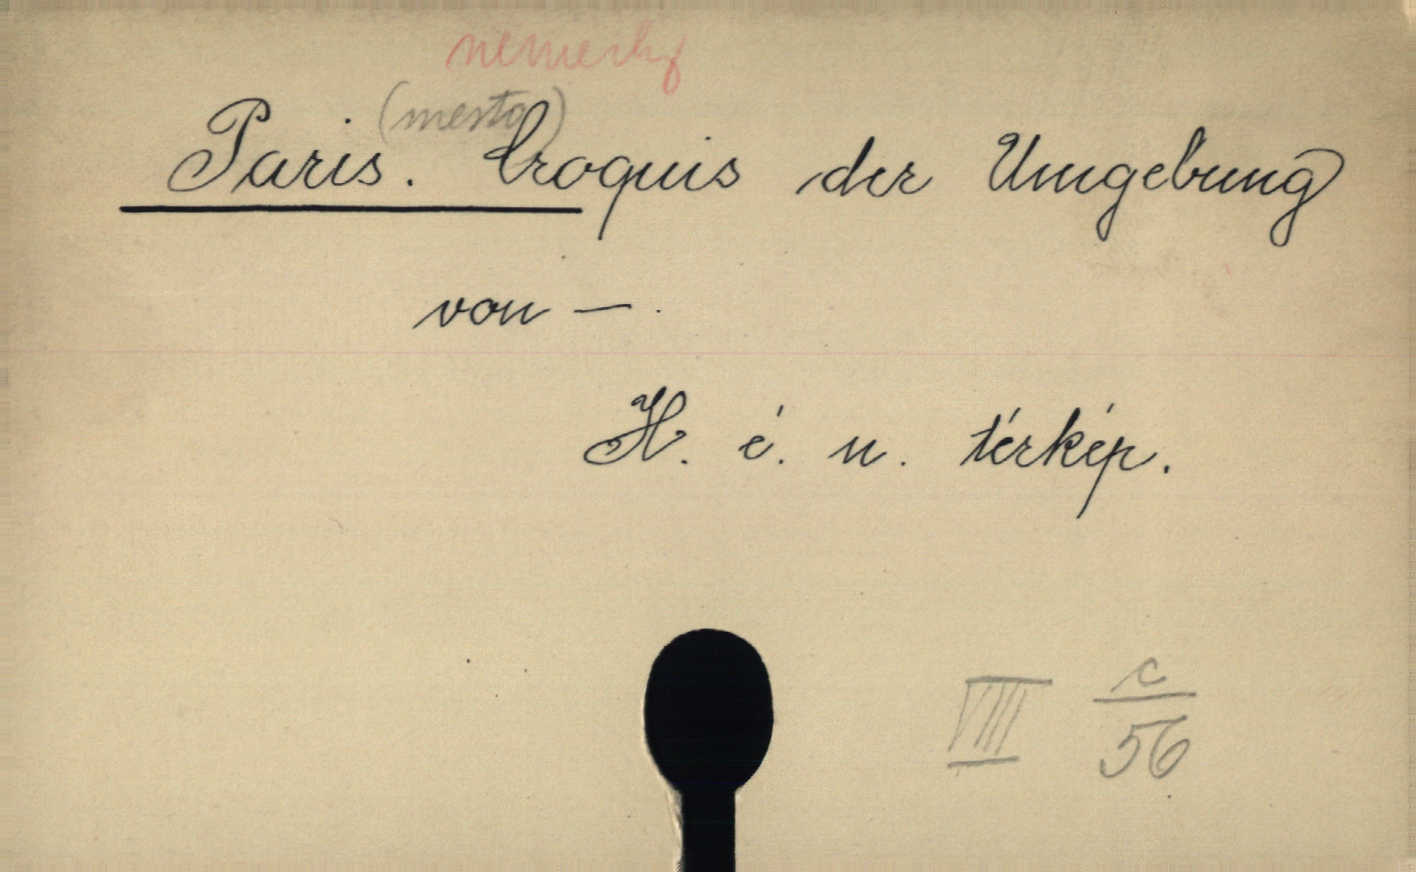 nemecky
(mesto)
Paris. Croquis der Umgebung
von —.
H. é. n. térkép.
VIII c/56